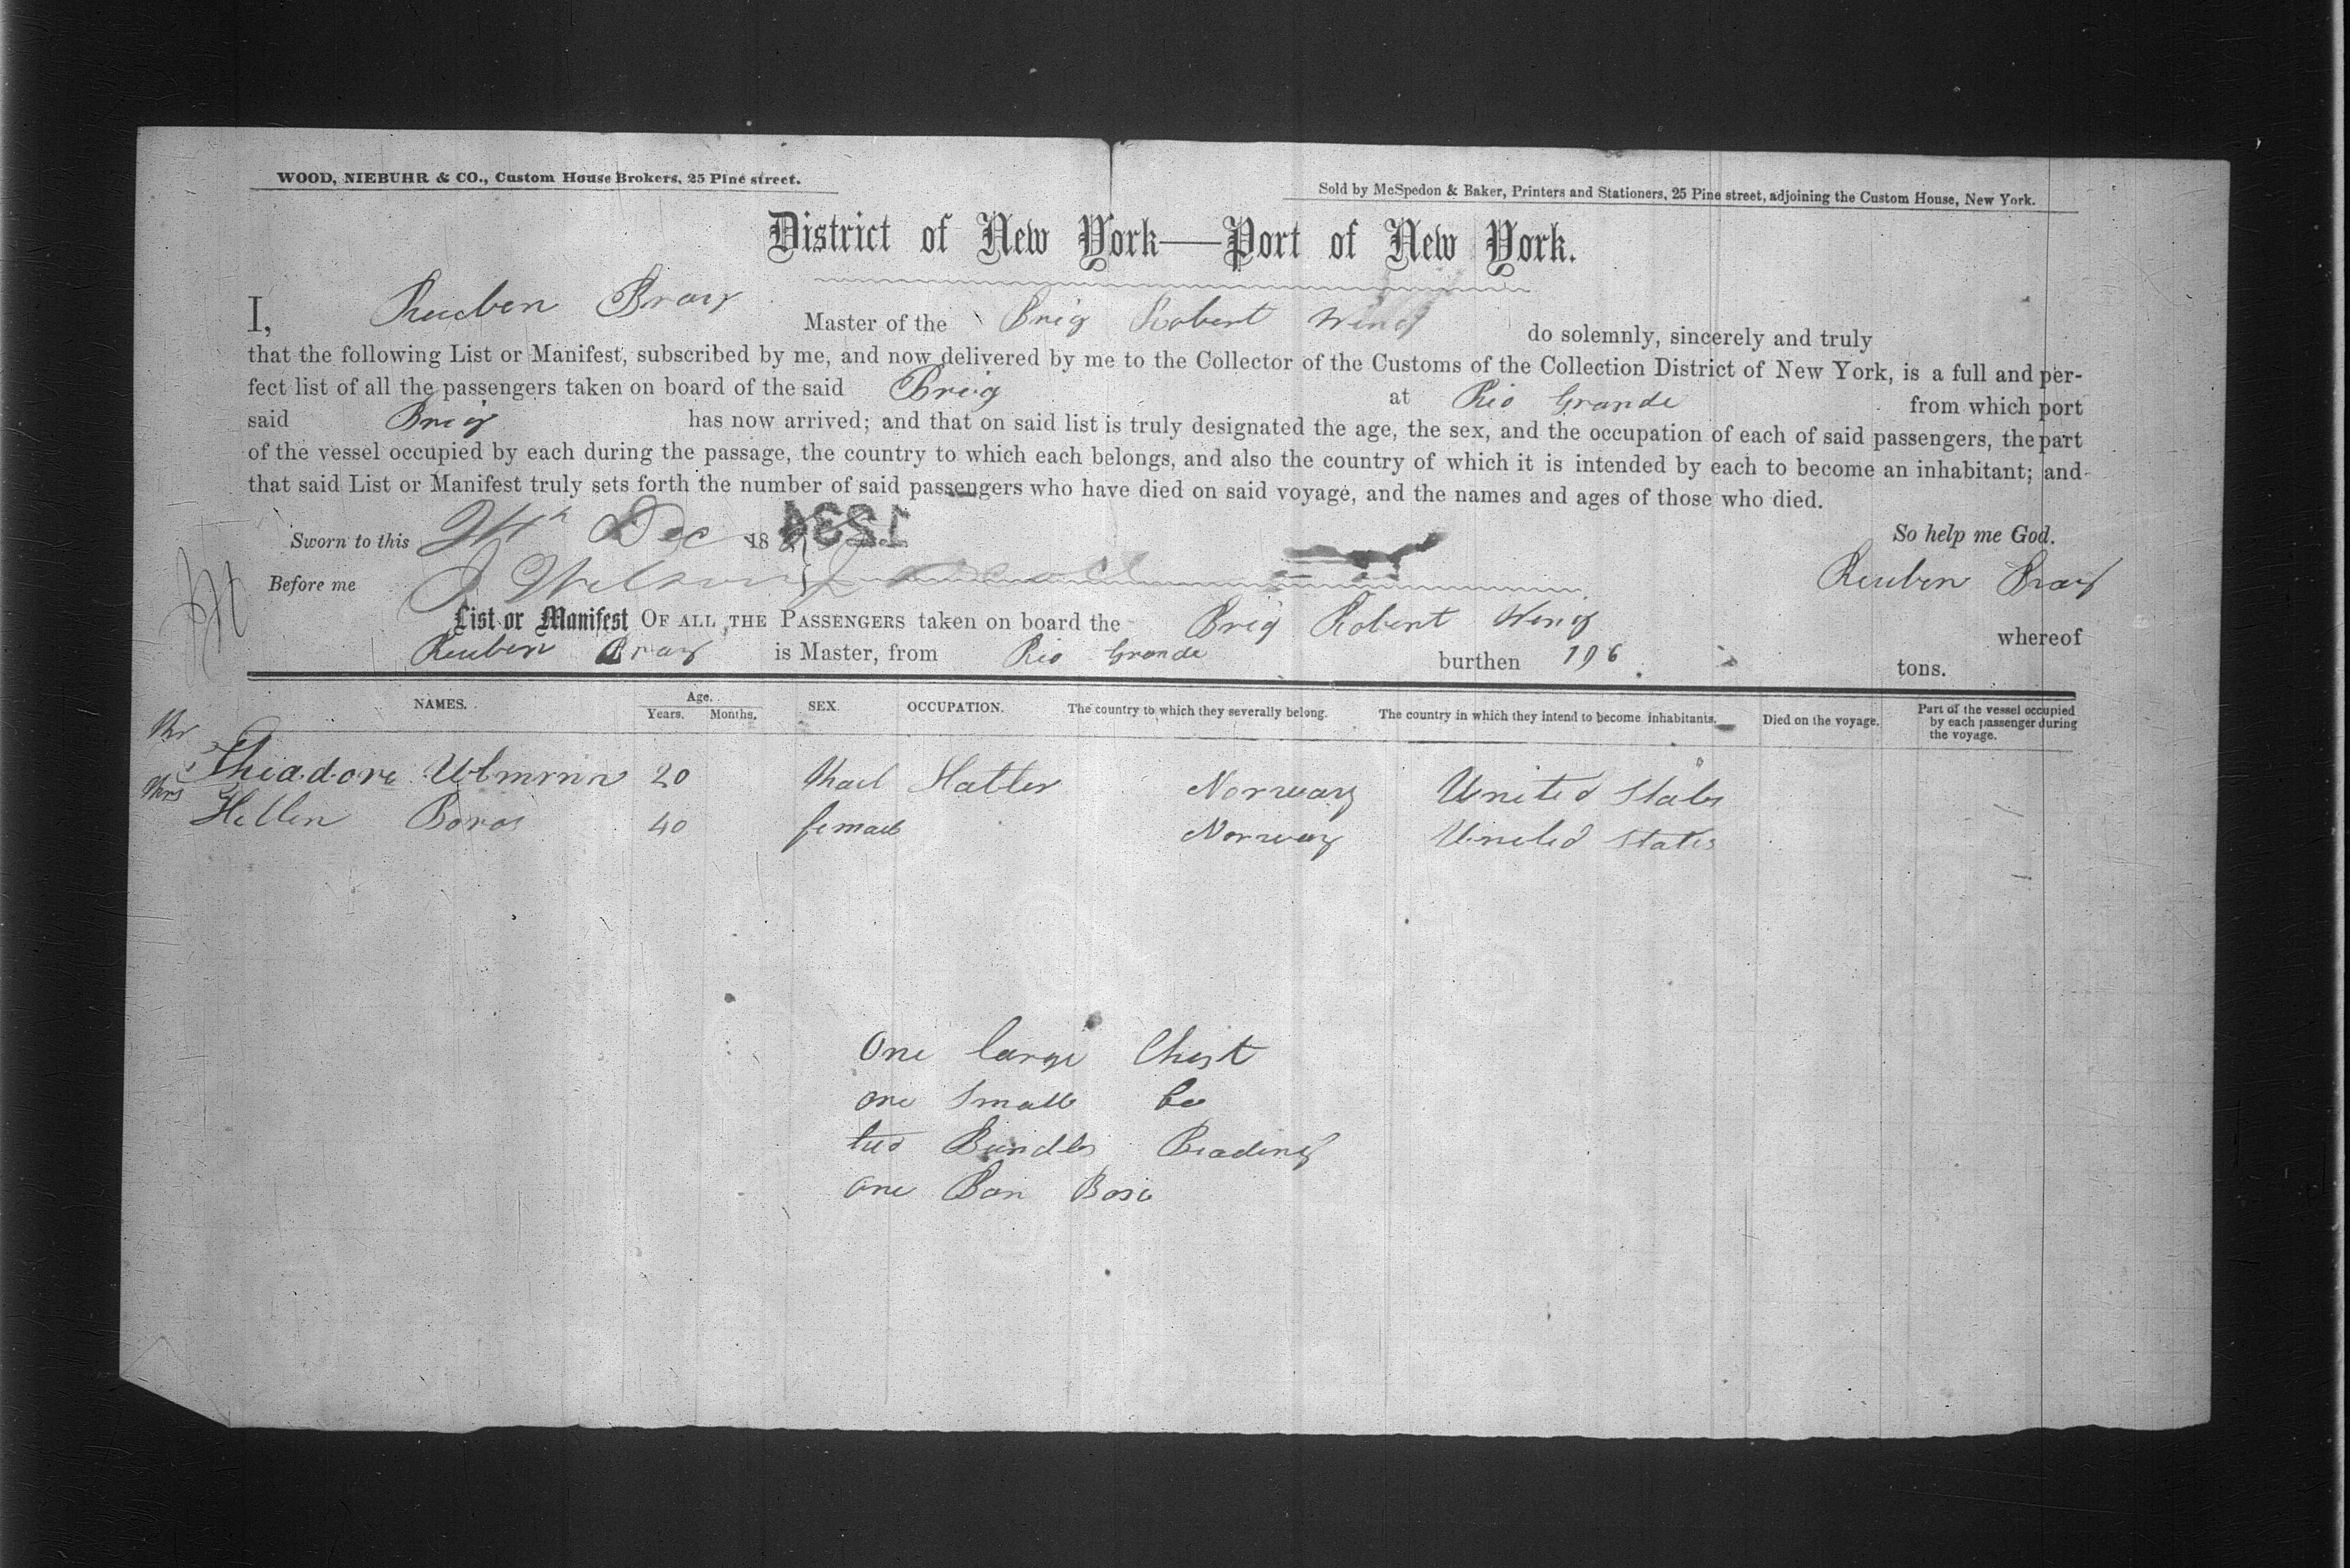 WOOD, NIEBUHR & CO., Custom House Brokers, 25 Pine street.
Sold by McSpedon & Baker, Printers and Stationers, 25 Pine street, adjoining the Custom House, New York.
District of New York—Port of New York.
I, Reuben Bray Master of the Brig Robert Wing do solemnly, sincerely and truly
that the following List or Manifest, subscribed by me, and now delivered by me to the Collector of the Customs of the Collection District of New York, is a full and per-
fect list of all the passengers taken on board of the said Breig at Rio Grande from which port
said Brig has now arrived; and that on said list is truly designated the age, the sex, and the occupation of each of said passengers, the part
of the vessel occupied by each during the passage, the country to which each belongs, and also the country of which it is intended by each to become an inhabitant; and
that said List or Manifest truly sets forth the number of said passengers who have died on said voyage, and the names and ages of those who died.
Sworn to this Dec 18 1234 So help me God.
Before me Reuben Bray
List or Manifest OF ALL THE PASSENGERS taken on board the Brig Robert Wing whereof
Reuben Bray is Master, from Rio Grande burthen 196 tons.
NAMES. Age. Years. Months. SEX. OCCUPATION. The country to which they severally belong. The country in which they intend to become inhabitants. Died on the voyage. Part of the vessel occupied by each passenger during the voyage.
Mr Theadore 20 Mael Hatter Norway United States
Mrs Hellen 40 female Norway United States
One large Chest
one Small
two Bundles Beading
one Ban Box